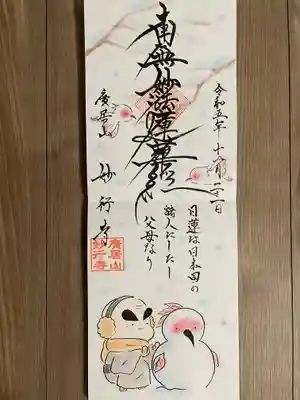 令和五年十二月二十一日
南無妙法蓮華経
廣居山
妙行寺
日蓮は日本国の
諸人にしたし
父母なり
廣居山
妙行寺